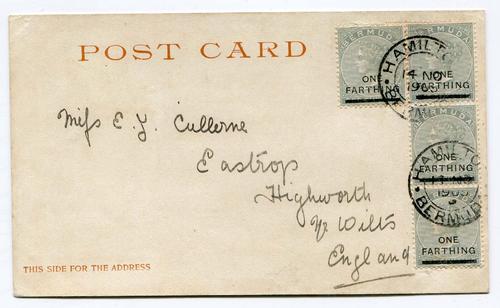 POST CARD
BERMUDA
ONE
FARTHING
BERMUDA
ONE
FARTHING
HAMILTO
14 NO
BERMUDA
ONE
FARTHING
HAMILTO
BERMUD
ONE
FARTHING
Miss E. J. Cullerne
Eastrop
Highworth
Nr Wilts
England
THIS SIDE FOR THE ADDRESS